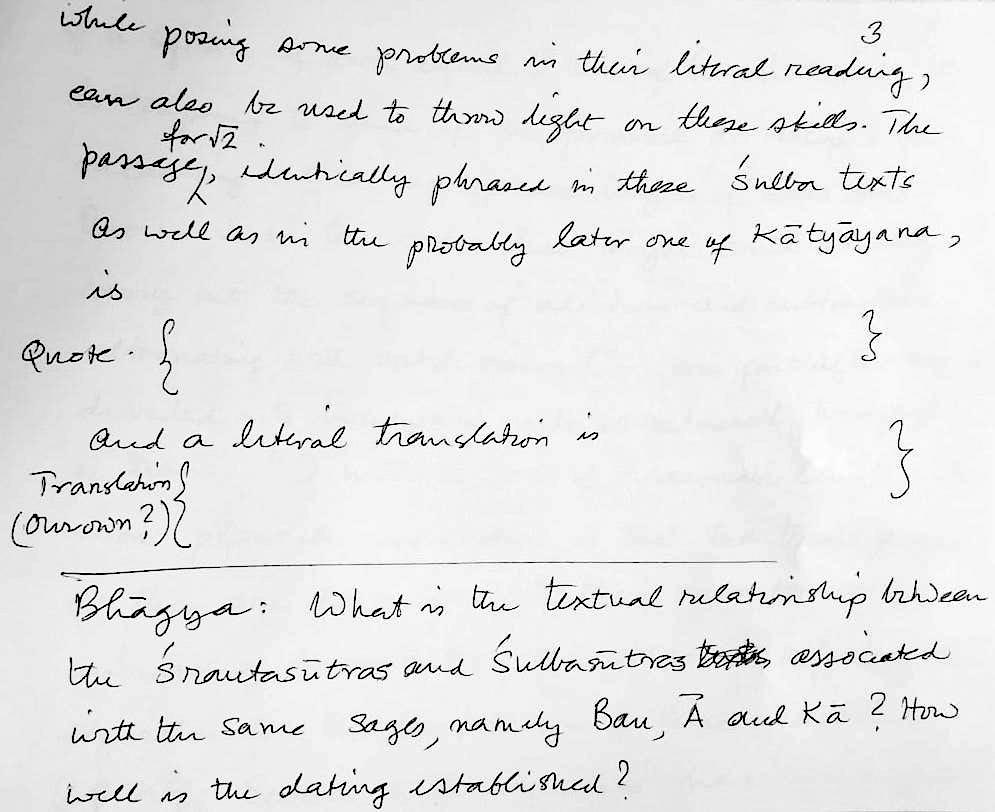 3
while posing some problems in their literal reading,
can also be used to throw light on these skills. The
for √2
passage, identically phrased in these Śulba texts
as well as in the probably later one of Kātyāyana,
is
Quote. { }
and a literal translation is
Translation { }
(Our own?) {
Bhāgya: What is the textual relationship between
the Śrautasūtras and Śulbasūtras associated
with the same sages, namely Bau, Ā and Kā? How
well is the dating established?